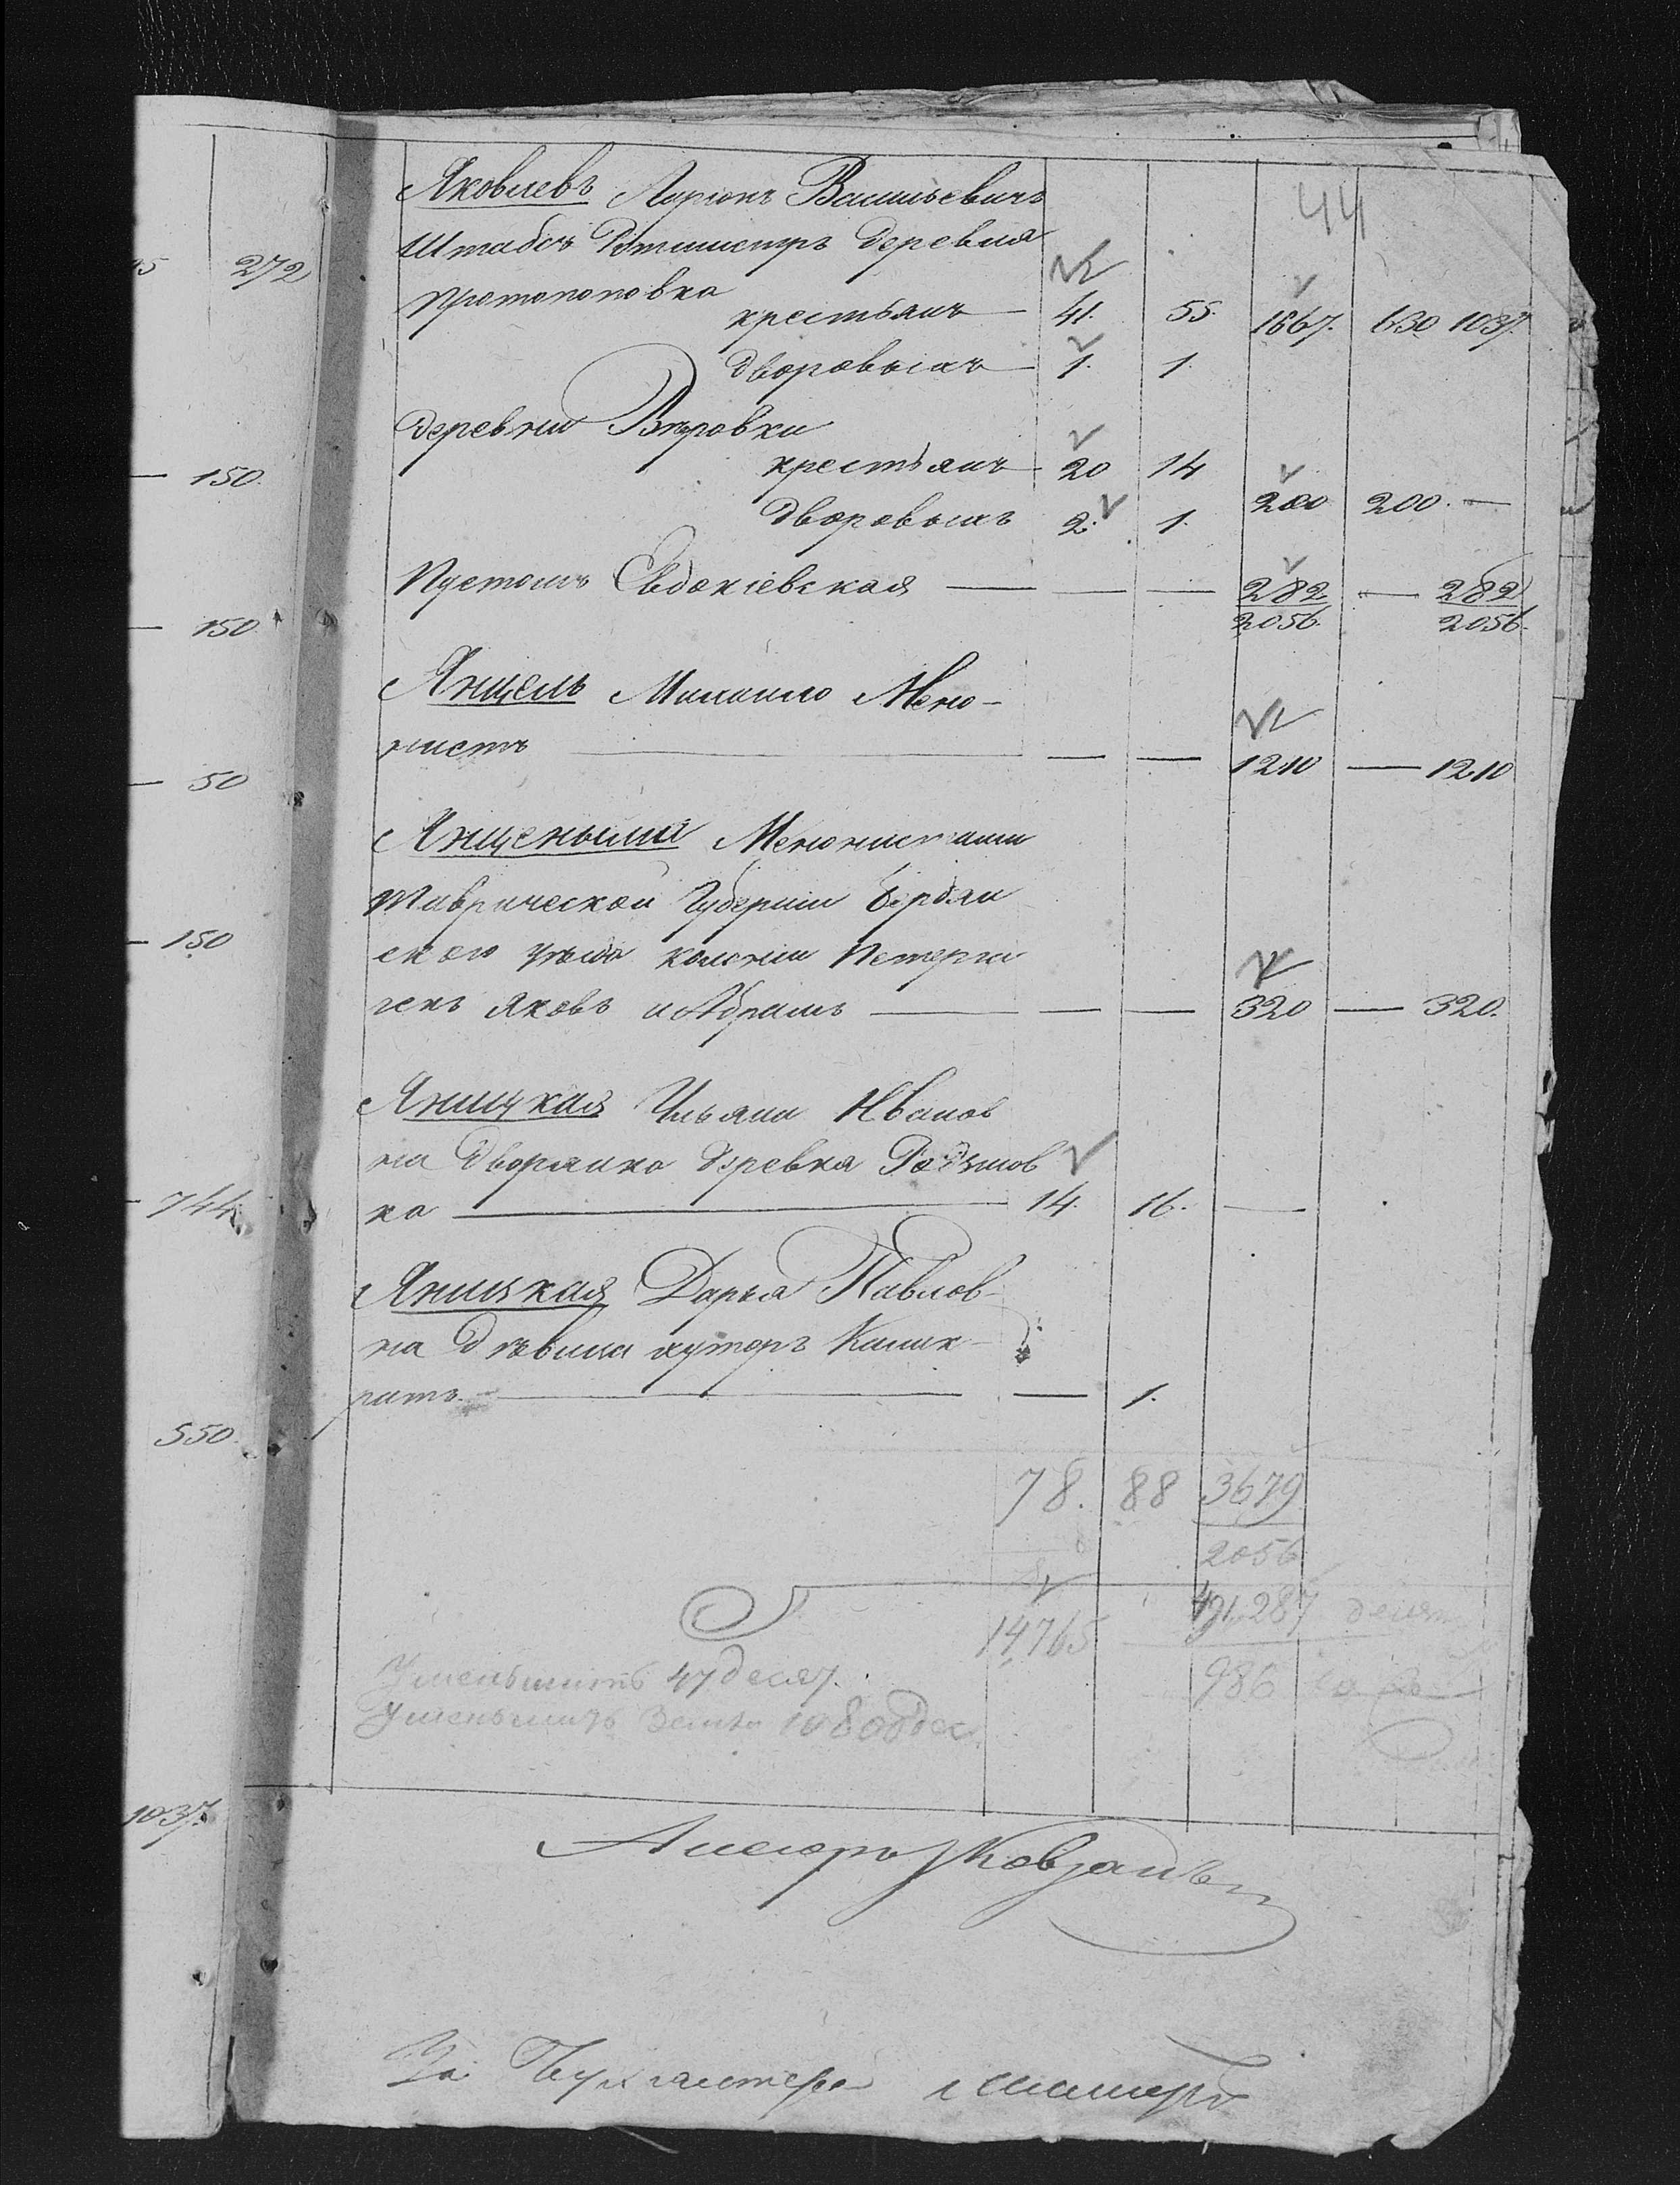 44
Яковлевъ Ларіонъ Васильевичъ
Штабсъ Ротмистръ деревня
Протопоповка
крестьянъ — 41. 55. 1667. 630 1037.
дворовыхъ — 1. 1.
деревни Вѣровки
крестьянъ — 20 14
дворовыхъ 2. 1. 200 200. —
Пустошь Евдокіевская — — — 282 — 282
2056. 2056.
Янцель Михаило Мено-
нистъ — — — 1210 — 1210
Янценыма Менонистами
Таврической Губерніи Бердян
скаго уѣзда колоніи Петерга
генъ Яковъ и Абрамъ — — — 320 — 320.
Яницкая Ульяна Иванов
на Дворянка деревня
ка — 14. 16. —
Яницкая Дарья Павлов-
на Дѣвица хуторъ
ратъ. — — 1.
78. 88 3679
2056
14,765 491,287 десят
986
Уменьшить 47 десят.
Уменьшить земли 10800 дес
Ассесоръ Ковзанъ
За Бухгалтера
272
150.
150
50
150
744.
550.
1037.